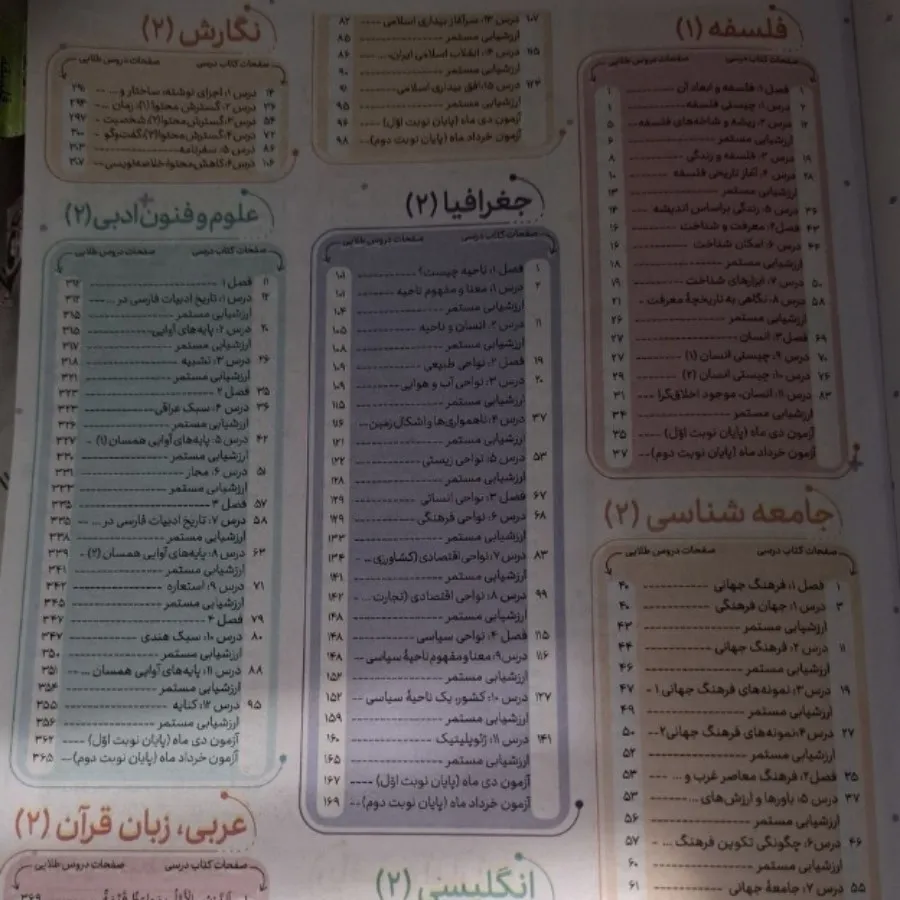 فلسفه (۱)
صفحات کتاب درسی صفحات دروس طلایی
۱ فصل ۱: فلسفه و ابعاد آن ۱
۲ درس ۱: چیستی فلسفه ۱
۱۲ درس ۲: ریشه و شاخه‌های فلسفه... ۵
ارزشیابی مستمر ۶
۱۹ درس ۳: فلسفه و زندگی ۸
۲۸ درس ۴: آغاز تاریخی فلسفه ۱۰
ارزشیابی مستمر ۱۳
۳۶ درس ۵: زندگی براساس اندیشه ۱۴
۴۳ فصل ۲: معرفت و شناخت ۱۶
۴۴ درس ۶: امکان شناخت ۱۶
ارزشیابی مستمر ۱۸
۵۰ درس ۷: ابزارهای شناخت ۱۹
۵۸ درس ۸: نگاهی به تاریخچهٔ معرفت ۲۱
ارزشیابی مستمر ۲۶
۶۹ فصل ۳: انسان ۲۷
۷۰ درس ۹: چیستی انسان (۱) ۲۷
۷۶ درس ۱۰: چیستی انسان (۲) ۲۹
۸۳ درس ۱۱: انسان، موجود اخلاق‌گرا ۳۱
ارزشیابی مستمر ۳۴
آزمون دی ماه (پایان نوبت اوّل) ۳۵
آزمون خرداد ماه (پایان نوبت دوم) ۳۷
جامعه شناسی (۲)
صفحات کتاب درسی صفحات دروس طلایی
۱ فصل ۱: فرهنگ جهانی ۴۰
۳ درس ۱: جهان فرهنگی ۴۰
ارزشیابی مستمر ۴۳
۱۱ درس ۲: فرهنگ جهانی ۴۴
ارزشیابی مستمر ۴۶
۱۹ درس ۳: نمونه‌های فرهنگ جهانی ۱ ۴۷
ارزشیابی مستمر ۴۹
۲۷ درس ۴: نمونه‌های فرهنگ جهانی ۲ ۵۰
ارزشیابی مستمر ۵۲
۳۵ فصل ۲: فرهنگ معاصر غرب و ... ۵۳
۳۷ درس ۵: باورها و ارزش‌های ... ۵۳
ارزشیابی مستمر ۵۶
۴۶ درس ۶: چگونگی تکوین فرهنگ ... ۵۷
ارزشیابی مستمر ۶۰
۵۵ درس ۷: جامعهٔ جهانی ۶۱
۱۰۷ درس ۱۳: سرآغاز بیداری اسلامی ۸۲
ارزشیابی مستمر ۸۵
۱۱۵ درس ۱۴: انقلاب اسلامی ایران، ... ۸۶
ارزشیابی مستمر ۹۰
۱۲۳ درس ۱۵: افق بیداری اسلامی ۹۱
ارزشیابی مستمر ۹۵
آزمون دی ماه (پایان نوبت اوّل) ۹۶
آزمون خرداد ماه (پایان نوبت دوم) ۹۸
جغرافیا (۲)
صفحات کتاب درسی صفحات دروس طلایی
۱ فصل ۱: ناحیه چیست؟ ۱۰۱
۲ درس ۱: معنا و مفهوم ناحیه ۱۰۱
ارزشیابی مستمر ۱۰۴
۱۱ درس ۲: انسان و ناحیه ۱۰۵
ارزشیابی مستمر ۱۰۸
۱۹ فصل ۲: نواحی طبیعی ۱۰۹
۲۰ درس ۳: نواحی آب و هوایی ۱۰۹
ارزشیابی مستمر ۱۱۵
۳۷ درس ۴: ناهمواری‌ها و اشکال زمین... ۱۱۶
ارزشیابی مستمر ۱۲۱
۵۳ درس ۵: نواحی زیستی ۱۲۲
ارزشیابی مستمر ۱۲۸
۶۷ فصل ۳: نواحی انسانی ۱۲۹
۶۸ درس ۶: نواحی فرهنگی ۱۲۹
ارزشیابی مستمر ۱۳۳
۸۳ درس ۷: نواحی اقتصادی (کشاورزی ... ۱۳۴
ارزشیابی مستمر ۱۴۱
۹۹ درس ۸: نواحی اقتصادی (تجارت ... ۱۴۲
ارزشیابی مستمر ۱۴۸
۱۱۵ فصل ۴: نواحی سیاسی ۱۴۸
۱۱۶ درس ۹: معنا و مفهوم ناحیهٔ سیاسی ۱۴۸
ارزشیابی مستمر ۱۵۲
۱۲۷ درس ۱۰: کشور، یک ناحیهٔ سیاسی ۱۵۲
ارزشیابی مستمر ۱۵۹
۱۴۱ درس ۱۱: ژئوپلیتیک ۱۶۰
ارزشیابی مستمر ۱۶۵
آزمون دی ماه (پایان نوبت اوّل) ۱۶۷
آزمون خرداد ماه (پایان نوبت دوم) ۱۶۹
انگلیسی (۲)
نگارش (۲)
صفحات کتاب درسی صفحات دروس طلایی
۱۴ درس ۱: اجزای نوشته، ساختار و ... ۲۹۱
۳۶ درس ۲: گسترش محتوا (۱): زمان ... ۲۹۴
۵۴ درس ۳: گسترش محتوا (۲): شخصیت ۲۹۷
۷۲ درس ۴: گسترش محتوا (۳): گفت‌وگو ۳۰۰
۸۶ درس ۵: سفرنامه ۳۱۳
۱۰۶ درس ۶: کاهش محتوا: خلاصه‌نویسی ۳۱۷
علوم و فنون ادبی (۲)
صفحات کتاب درسی صفحات دروس طلایی
۱۱ فصل ۱ ۳۱۲
۱۲ درس ۱: تاریخ ادبیات فارسی در ... ۳۱۲
ارزشیابی مستمر ۳۱۵
۲۰ درس ۲: پایه‌های آوایی ۳۱۵
ارزشیابی مستمر ۳۱۷
۲۶ درس ۳: تشبیه ۳۱۸
ارزشیابی مستمر ۳۲۱
۳۵ فصل ۲ ۳۲۳
۳۶ درس ۴: سبک عراقی ۳۲۳
ارزشیابی مستمر ۳۲۶
۴۲ درس ۵: پایه‌های آوایی همسان (۱) ۳۲۷
ارزشیابی مستمر ۳۳۰
۵۱ درس ۶: مجاز ۳۳۱
ارزشیابی مستمر ۳۳۳
۵۷ فصل ۳ ۳۳۵
۵۸ درس ۷: تاریخ ادبیات فارسی در ... ۳۳۵
ارزشیابی مستمر ۳۳۸
۶۳ درس ۸: پایه‌های آوایی همسان (۲) ۳۳۹
ارزشیابی مستمر ۳۴۱
۷۱ درس ۹: استعاره ۳۴۲
ارزشیابی مستمر ۳۴۵
۷۹ فصل ۴ ۳۴۷
۸۰ درس ۱۰: سبک هندی ۳۴۷
ارزشیابی مستمر ۳۵۰
۸۸ درس ۱۱: پایه‌های آوایی همسان ... ۳۵۱
ارزشیابی مستمر ۳۵۴
۹۵ درس ۱۲: کنایه ۳۵۵
ارزشیابی مستمر ۳۵۶
آزمون دی ماه (پایان نوبت اوّل) ۳۶۲
آزمون خرداد ماه (پایان نوبت دوم) ۳۶۵
عربی، زبان قرآن (۲)
صفحات کتاب درسی صفحات دروس طلایی